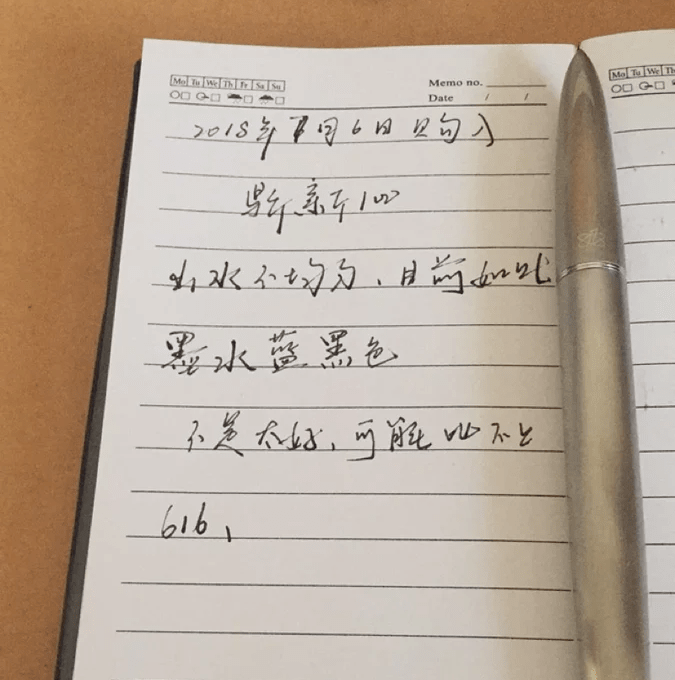 Mo Tu We Th Fr Sa Su
Memo no.
Date / /
2018年7月6日购入
崭新100
出水不均匀、目前如此
墨水蓝黑色
不是太好,可能比不上
616,
Mo Tu We Th